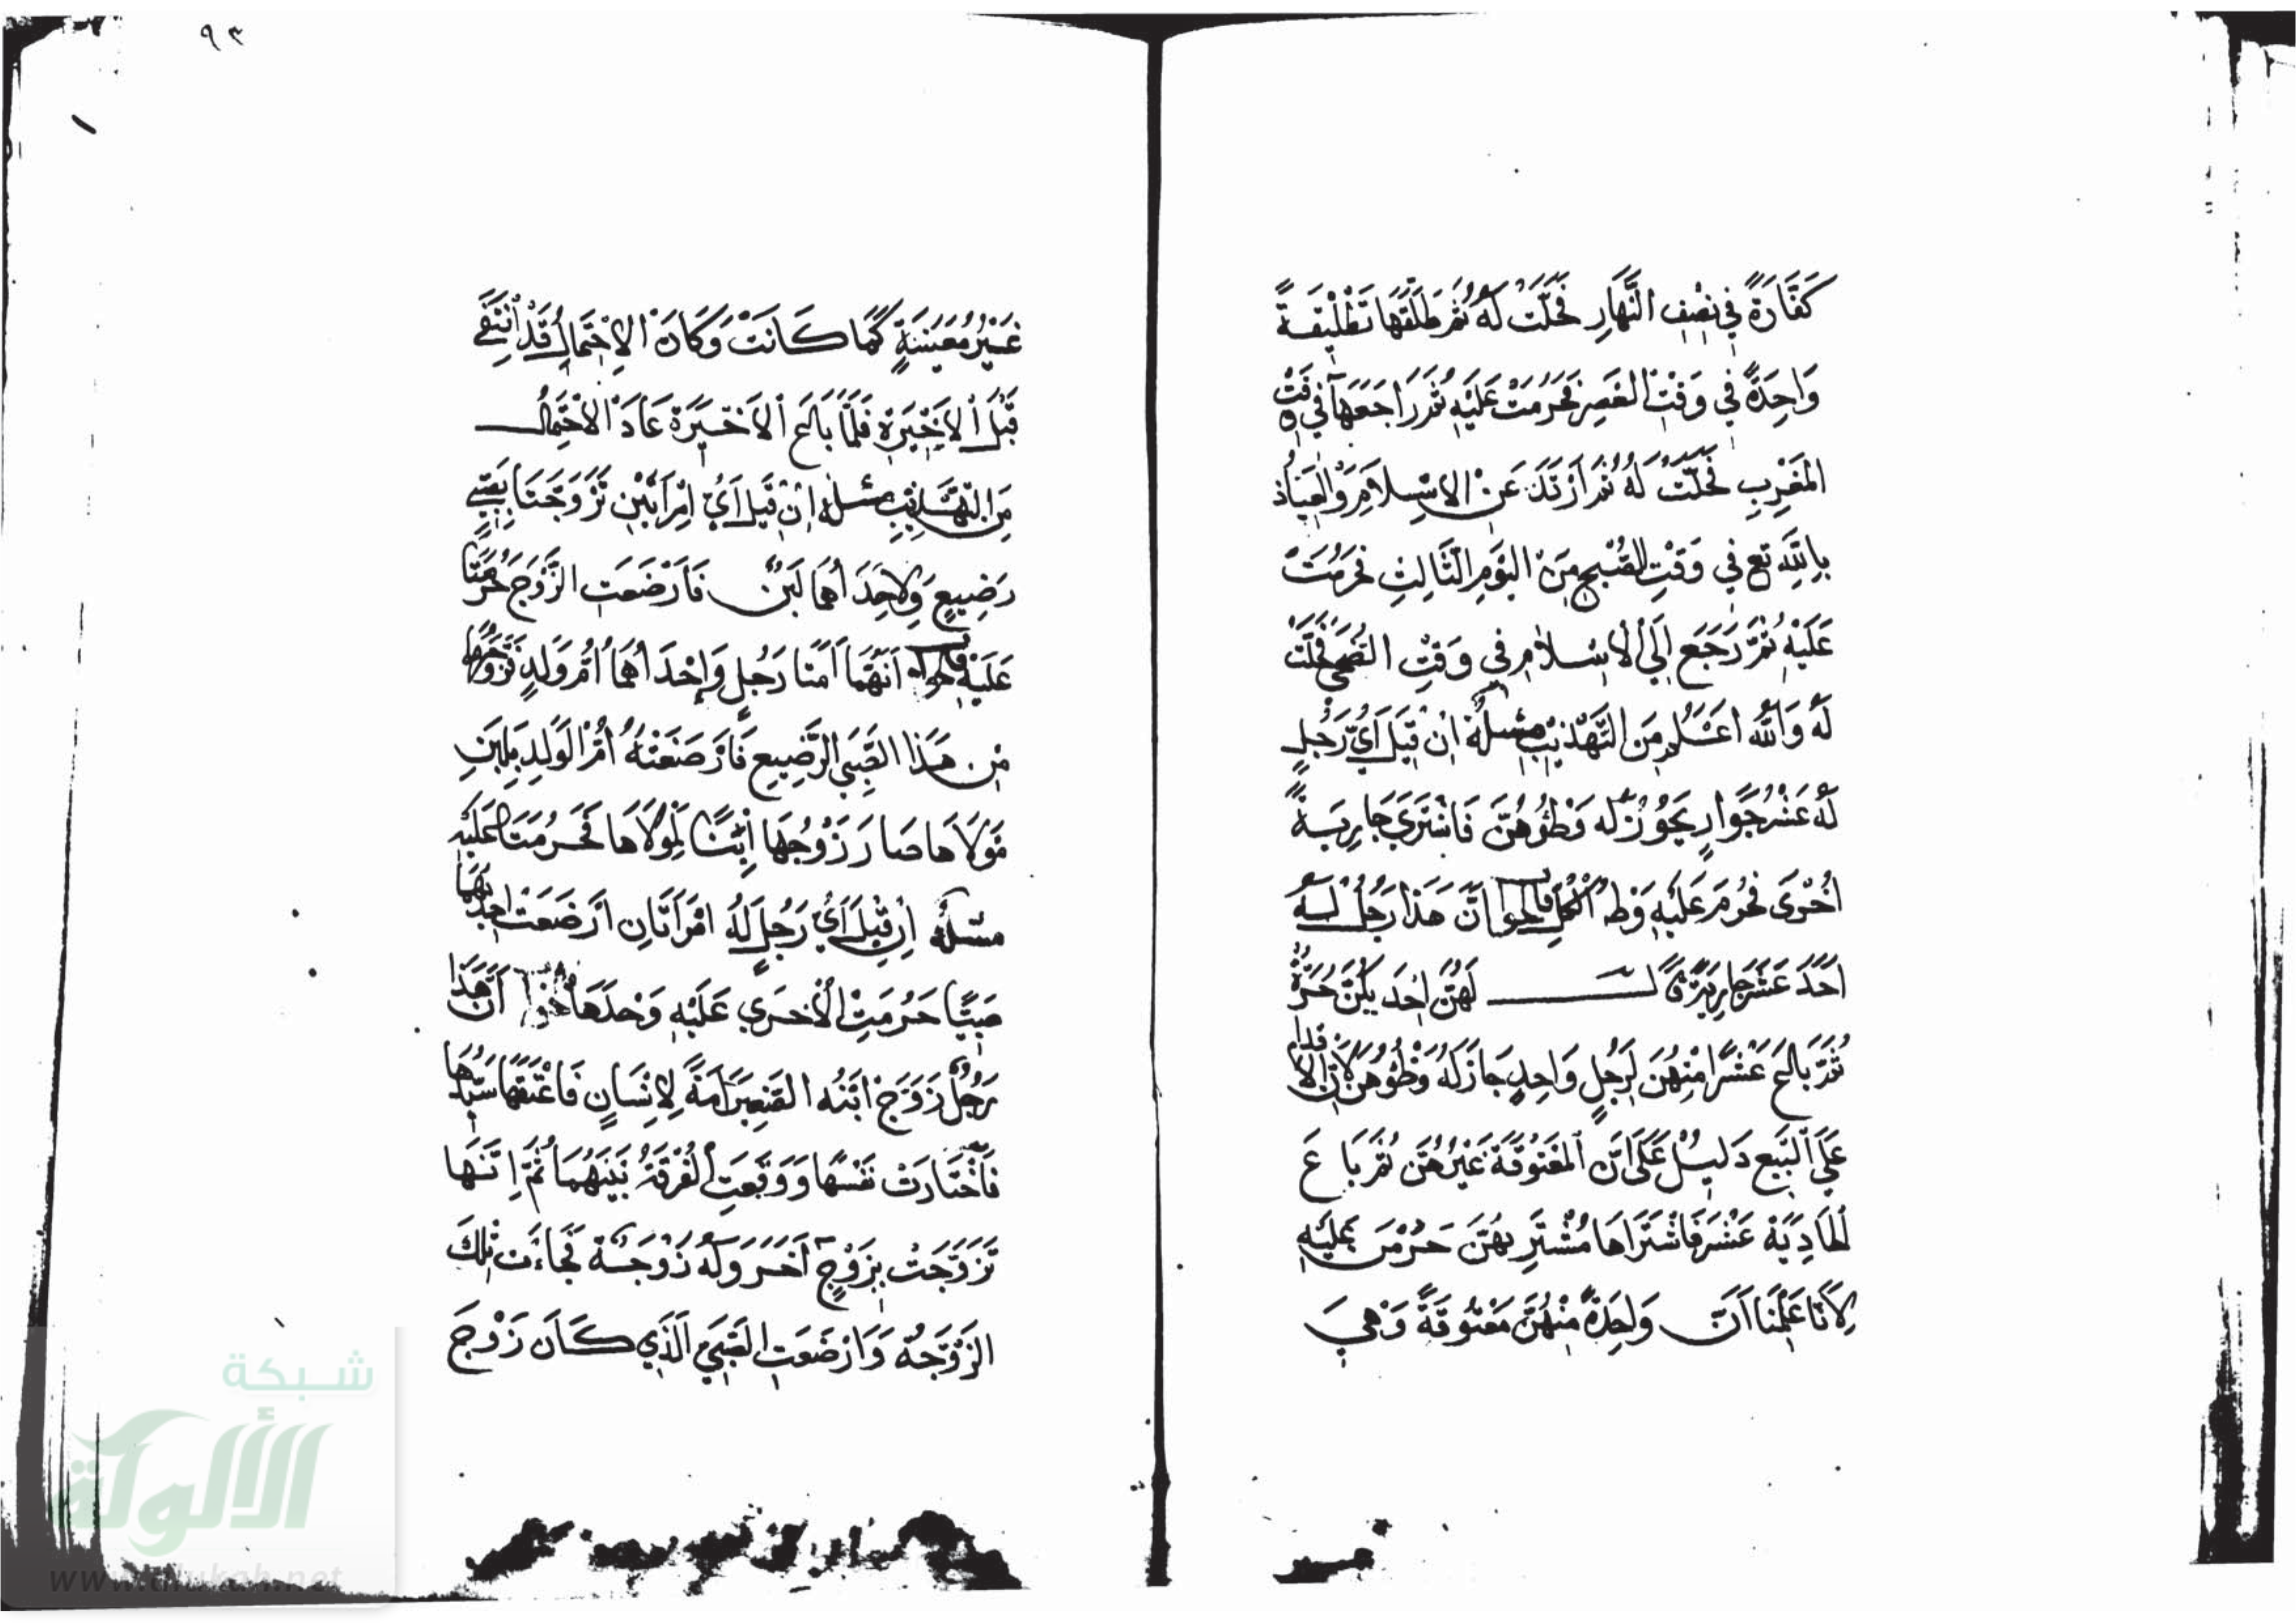 كَفَّارَةً فِي نِصْفِ النَّهَارِ فَحَلَّتْ لَهُ ثُمَّ طَلَّقَهَا تَطْلِيقَةً
وَاحِدَةً فِي وَقْتِ الْعَصْرِ فَحَرُمَتْ عَلَيْهِ ثُمَّ رَاجَعَهَا فِي وَقْتِ
الْمَغْرِبِ فَحَلَّتْ لَهُ ثُمَّ ارْتَدَّ عَنْ الْاِسْلَامِ وَالْعِيَاذُ
بِاللَّهِ تع فِي وَقْتِ الصُّبْحِ مِنَ الْيَوْمِ الثَّالِثِ فَحَرُمَتْ
عَلَيْهِ ثُمَّ رَجَعَ إِلَى الْاِسْلَامِ فِي وَقْتِ الضُّحَى فَحَلَّتْ
لَهُ وَاللَّهُ أَعْلَمُ مِنَ التَّهْذِيبِ مسئلة إِنْ قِيلَ أَيُّ رَجُلٍ
لَهُ عَشْرُ جَوَارٍ يَجُوزُ لَهُ وَطْؤُهُنَّ فَاشْتَرَى جَارِيَةً
أُخْرَى فَحَرُمَ عَلَيْهِ وَطْءُ الْكُلِّ فالجواب أَنَّ هَذَا رَجُلٌ لَهُ
أَحَدَ عَشَرَ جَارِيَةً قَالَ لَهُنَّ إِحْدَيكُنَّ حُرَّةٌ
ثُمَّ بَاعَ عَشْرًا مِنْهُنَّ لِرَجُلٍ وَاحِدٍ جَازَ لَهُ وَطْؤُهُنَّ لِأَنَّ الْاِقْدَامَ
عَلَى الْبَيْعِ دَلِيلٌ عَلَى أَنَّ الْمَعْتُوقَةَ غَيْرُهُنَّ ثُمَّ بَاعَ
الْحَادِيَةَ عَشَرَ فَاشْتَرَاهَا مُشْتَرِيهُنَّ حَرُمْنَ عَلَيْهِ
لِأَنَّا عَلِمْنَا أَنَّ وَاحِدَةً مِنْهُنَّ مَعْتُوقَةً وَهِيَ
٩٣
غَيْرُ مُعَيَّنَةٍ كَمَا كَانَتْ وَكَانَ الْاِحْتِمَالُ قَدْ انْتَفَى
قَبْلَ الْاَخِيرَةِ فَلَمَّا بَاعَ الْاَخِيرَةَ عَادَ الْاِحْتِمَالُ
مِنَ التَّهْذِيبِ مسئلة إِنْ قِيلَ أَيُّ امْرَأَتَيْنِ تَزَوَّجَتَا بِصَبِيٍّ
رَضِيعٍ وَلِاحْدَاهُمَا لَبَنٌ فَأَرْضَعَتِ الزَّوْجَ حَرُمَتَا
عَلَيْهِ فالجواب أَنَّهُمَا أَمَتَا رَجُلٍ وَإِحْدَاهُمَا أُمُّ وَلَدٍ تَزَوَّجَهَا
مِنْ هَذَا الصَّبِيِّ الرَّضِيعِ فَأَرْضَعَتْهُ أُمُّ الْوَلَدِ بِلَبَنِ
مَوْلَاهَا صَارَ زَوْجُهَا اِبْنًا لِمَوْلَاهَا فَحَرُمَتَا عَلَيْهِ
مسئلة إِنْ قِيلَ أَيُّ رَجُلٍ لَهُ امْرَأَتَانِ أَرْضَعَتْ إِحْدَيهُمَا
صَبِيًّا حَرُمَتِ الْأُخْرَى عَلَيْهِ وَحْدَهَا أَنَّ هَذَا
رَجُلٌ زَوَّجَ ابْنَهُ الصَّغِيرَ أَمَةً لِإِنْسَانٍ فَأَعْتَقَهَا سَيِّدُهَا
فَاخْتَارَتْ نَفْسَهَا وَوَقَعَتِ الْفُرْقَةُ بَيْنَهُمَا ثُمَّ إِنَّهَا
تَزَوَّجَتْ بِزَوْجٍ آخَرَ وَلَهُ زَوْجَةٌ فَجَاءَتْ تِلْكَ
الزَّوْجَةُ وَأَرْضَعَتِ الصَّبِيَّ الَّذِي كَانَ زَوْجَ
شبكة
الألوكة
www.alukah.net